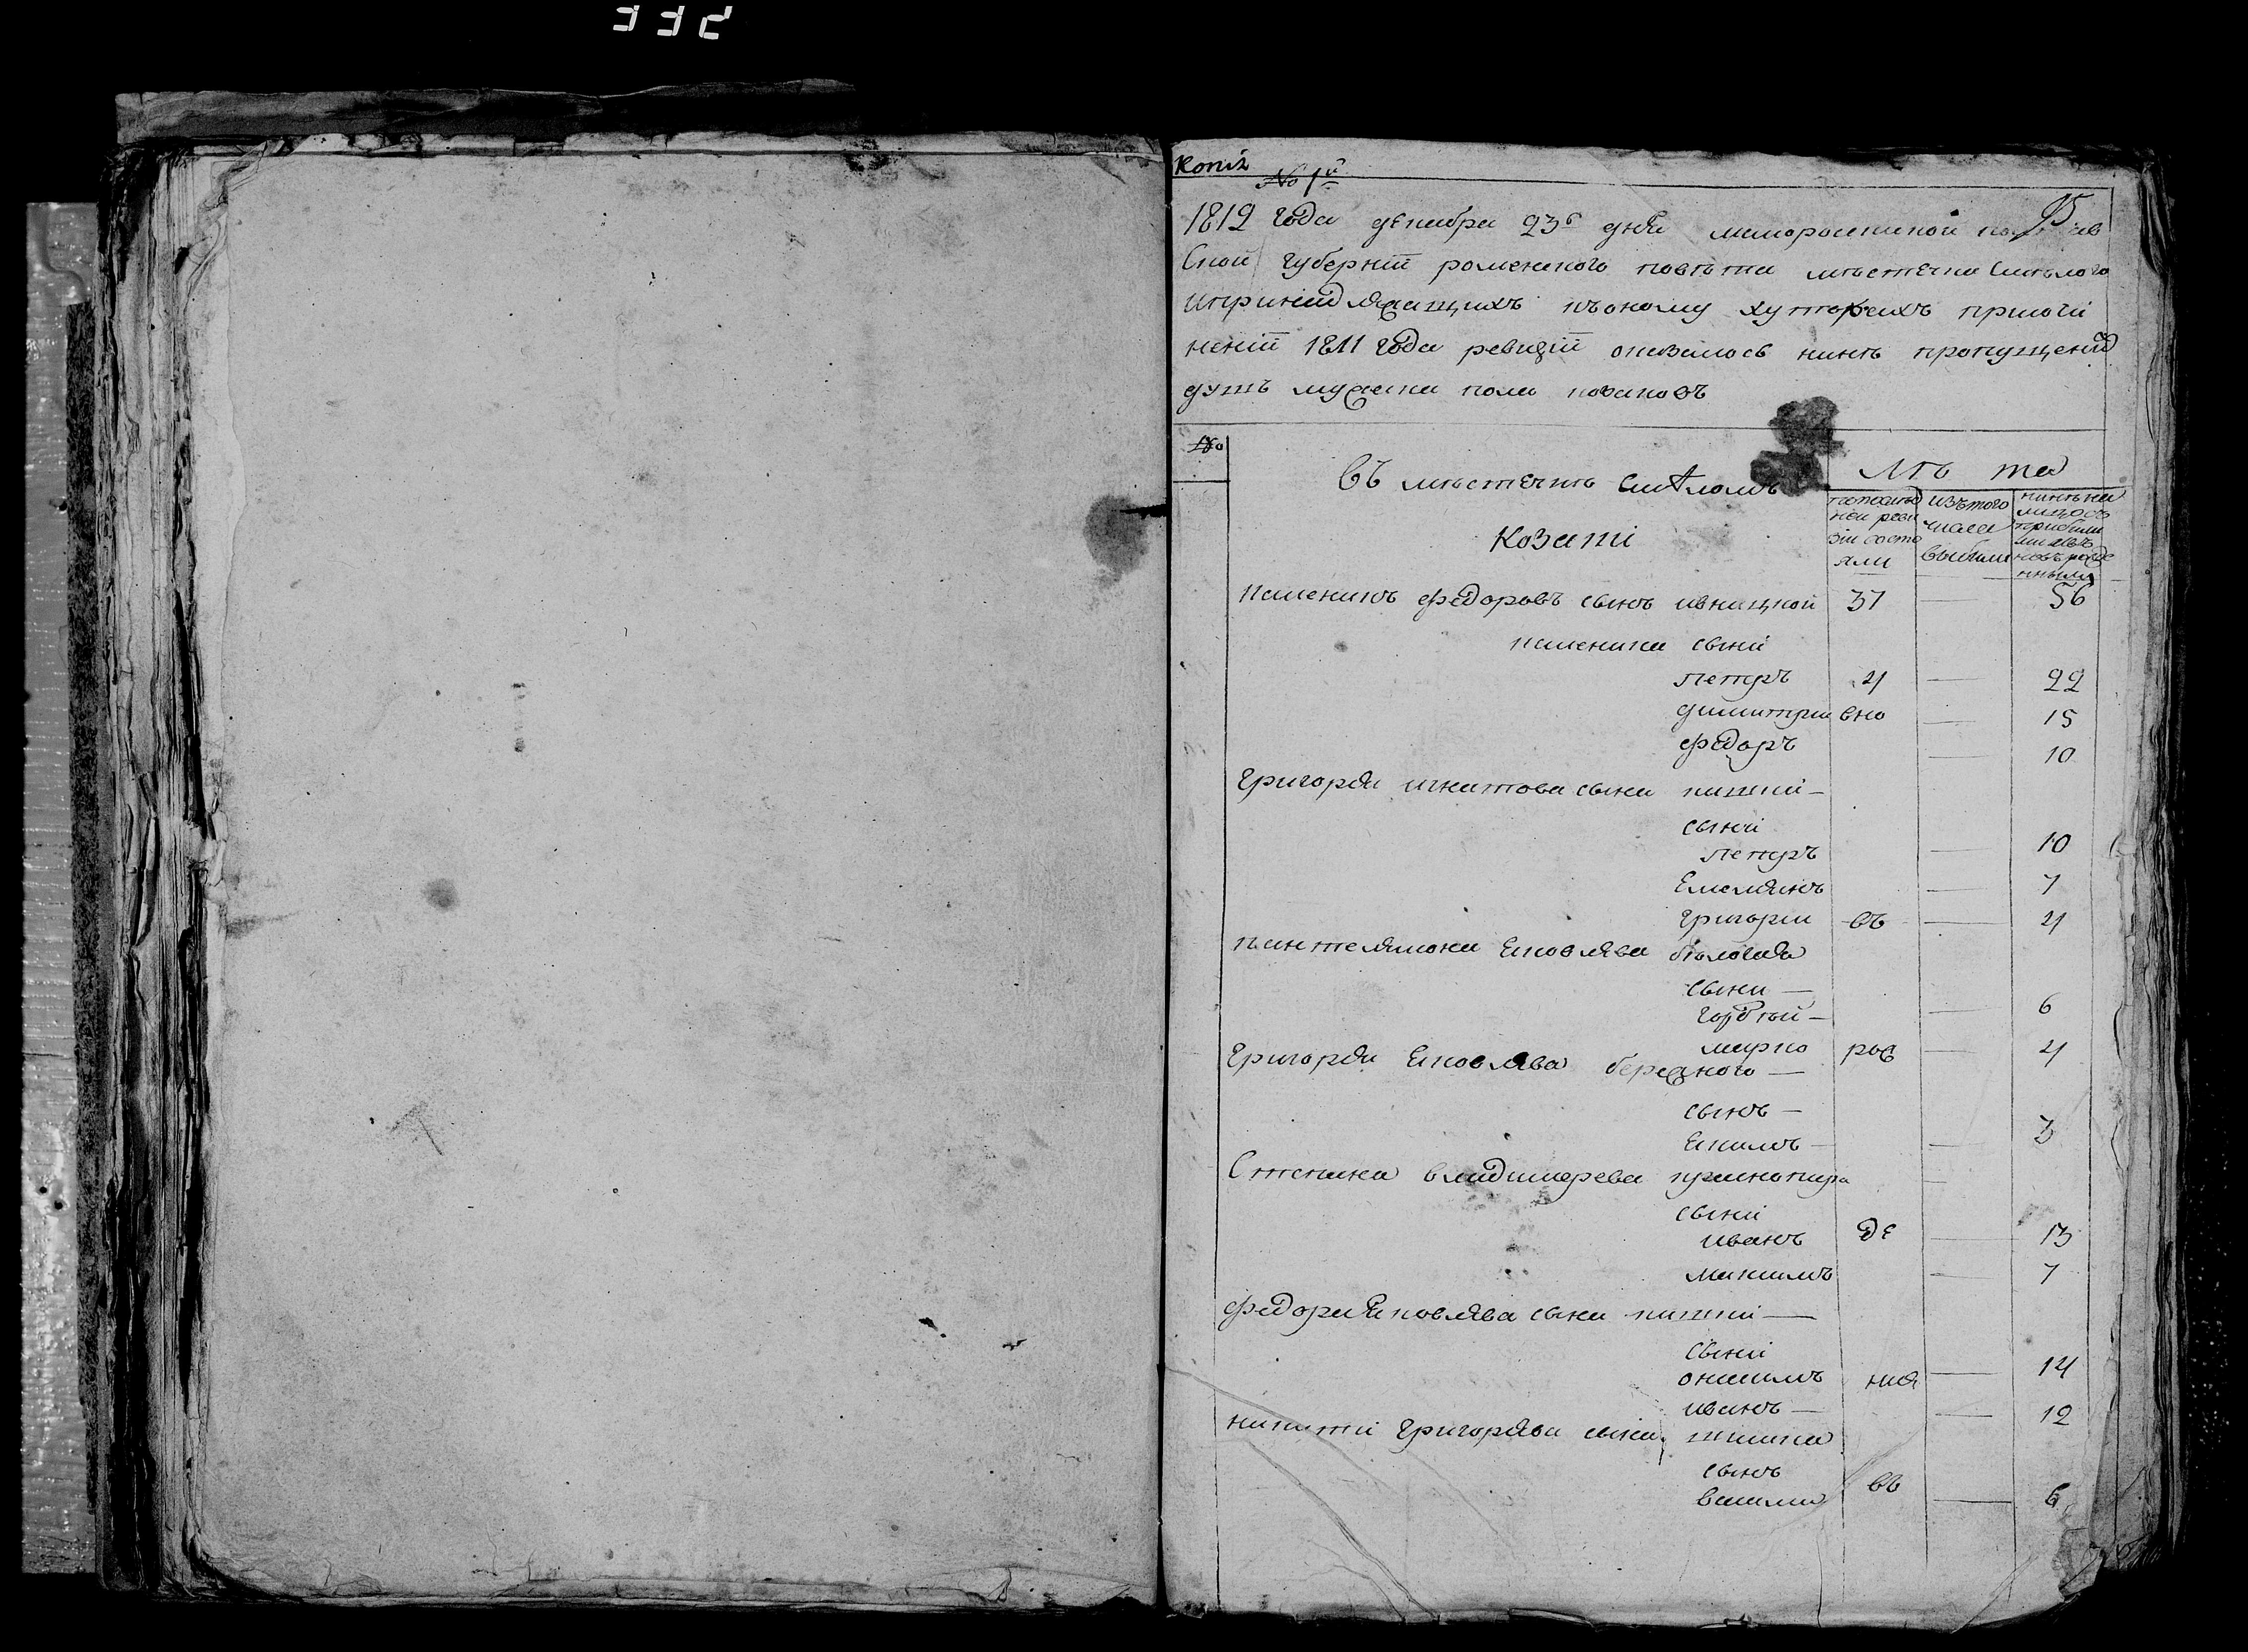 332
Копія
№ 1й
95
1812 года декабря 23го дня малороссийской полтав
Ской губерніи роменского повѣта мѣстечка Смѣлого
и принадлежащихъ къоному хуторахъ при сочи
неніи 1811 года ревизіи оказалось нинѣ пропущеннїи
душъ мужеска пола козаковъ
№
Въ мѣстечкѣ Смѣломъ
Лѣ та
Козаки
попослѣд
ней реви
зіи состо
яли
изътого
числа
выбыли
нинѣ на
лицо съ
прибыли
ми
новъ рожде
нными
федоровъ сынъ
37 — 56
сыни
петръ 4 — 22
димитрии вно — 15
федоръ — 10
Григорія игнатова сына кишки —
сыни
петръ — 10
Емелянъ — 7
григории въ — 4
пантелимона Яковлева бѣловада
сыни —
гордѣй — 6
марко рож — 4
Григорія Яковлева бережного —
сынъ —
Якимъ — 3
Степана владимерева
сыни
иванъ де — 13
максимъ — 7
федора Яковлева сына кишки —
сыни
онисимъ ния — 14
иванъ — 12
никити григоріева сина шишки
сынъ
василии въ — 6